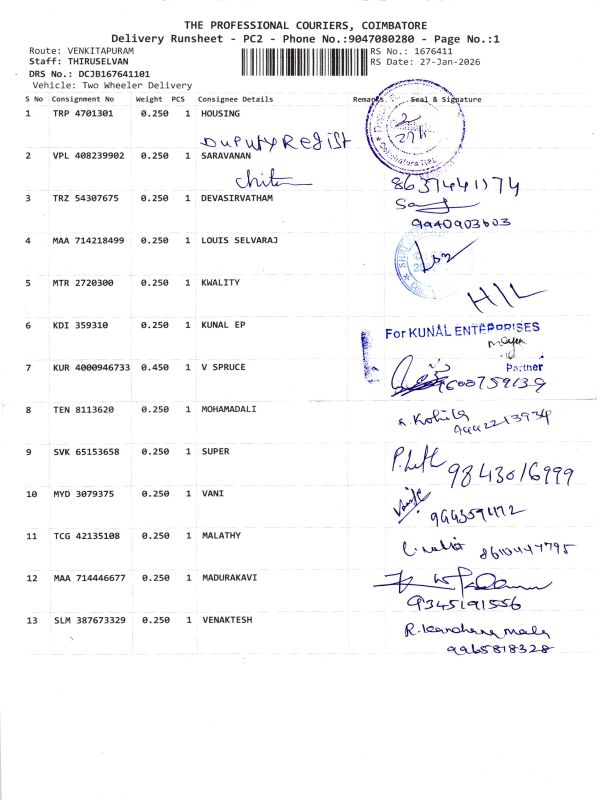 THE PROFESSIONAL COURIERS, COIMBATORE
Delivery Runsheet - PC2 - Phone No.:9047080280 - Page No.:1
Route: VENKITAPURAM
Staff: THIRUSELVAN
DRS No.: DCJB167641101
Vehicle: Two Wheeler Delivery
RS No.: 1676411
RS Date: 27-Jan-2026
S No Consignment No Weight PCS Consignee Details Remarks Seal & Signature
1 TRP 4701301 0.250 1 HOUSING
Duputy Regist
2 VPL 408239902 0.250 1 SARAVANAN
8637441174
3 TRZ 54307675 0.250 1 DEVASIRVATHAM
9940903603
4 MAA 714218499 0.250 1 LOUIS SELVARAJ
5 MTR 2720300 0.250 1 KWALITY
H/L
6 KDI 359310 0.250 1 KUNAL EP
For KUNAL ENTERPRISES
Partner
7 KUR 4000946733 0.450 1 V SPRUCE
9600759139
8 TEN 8113620 0.250 1 MOHAMADALI
9442213934
9 SVK 65153658 0.250 1 SUPER
9843016999
10 MYD 3079375 0.250 1 VANI
11 TCG 42135108 0.250 1 MALATHY
8610447795
12 MAA 714446677 0.250 1 MADURAKAVI
9345191556
13 SLM 387673329 0.250 1 VENAKTESH
R. Kanchana mala
9965818328